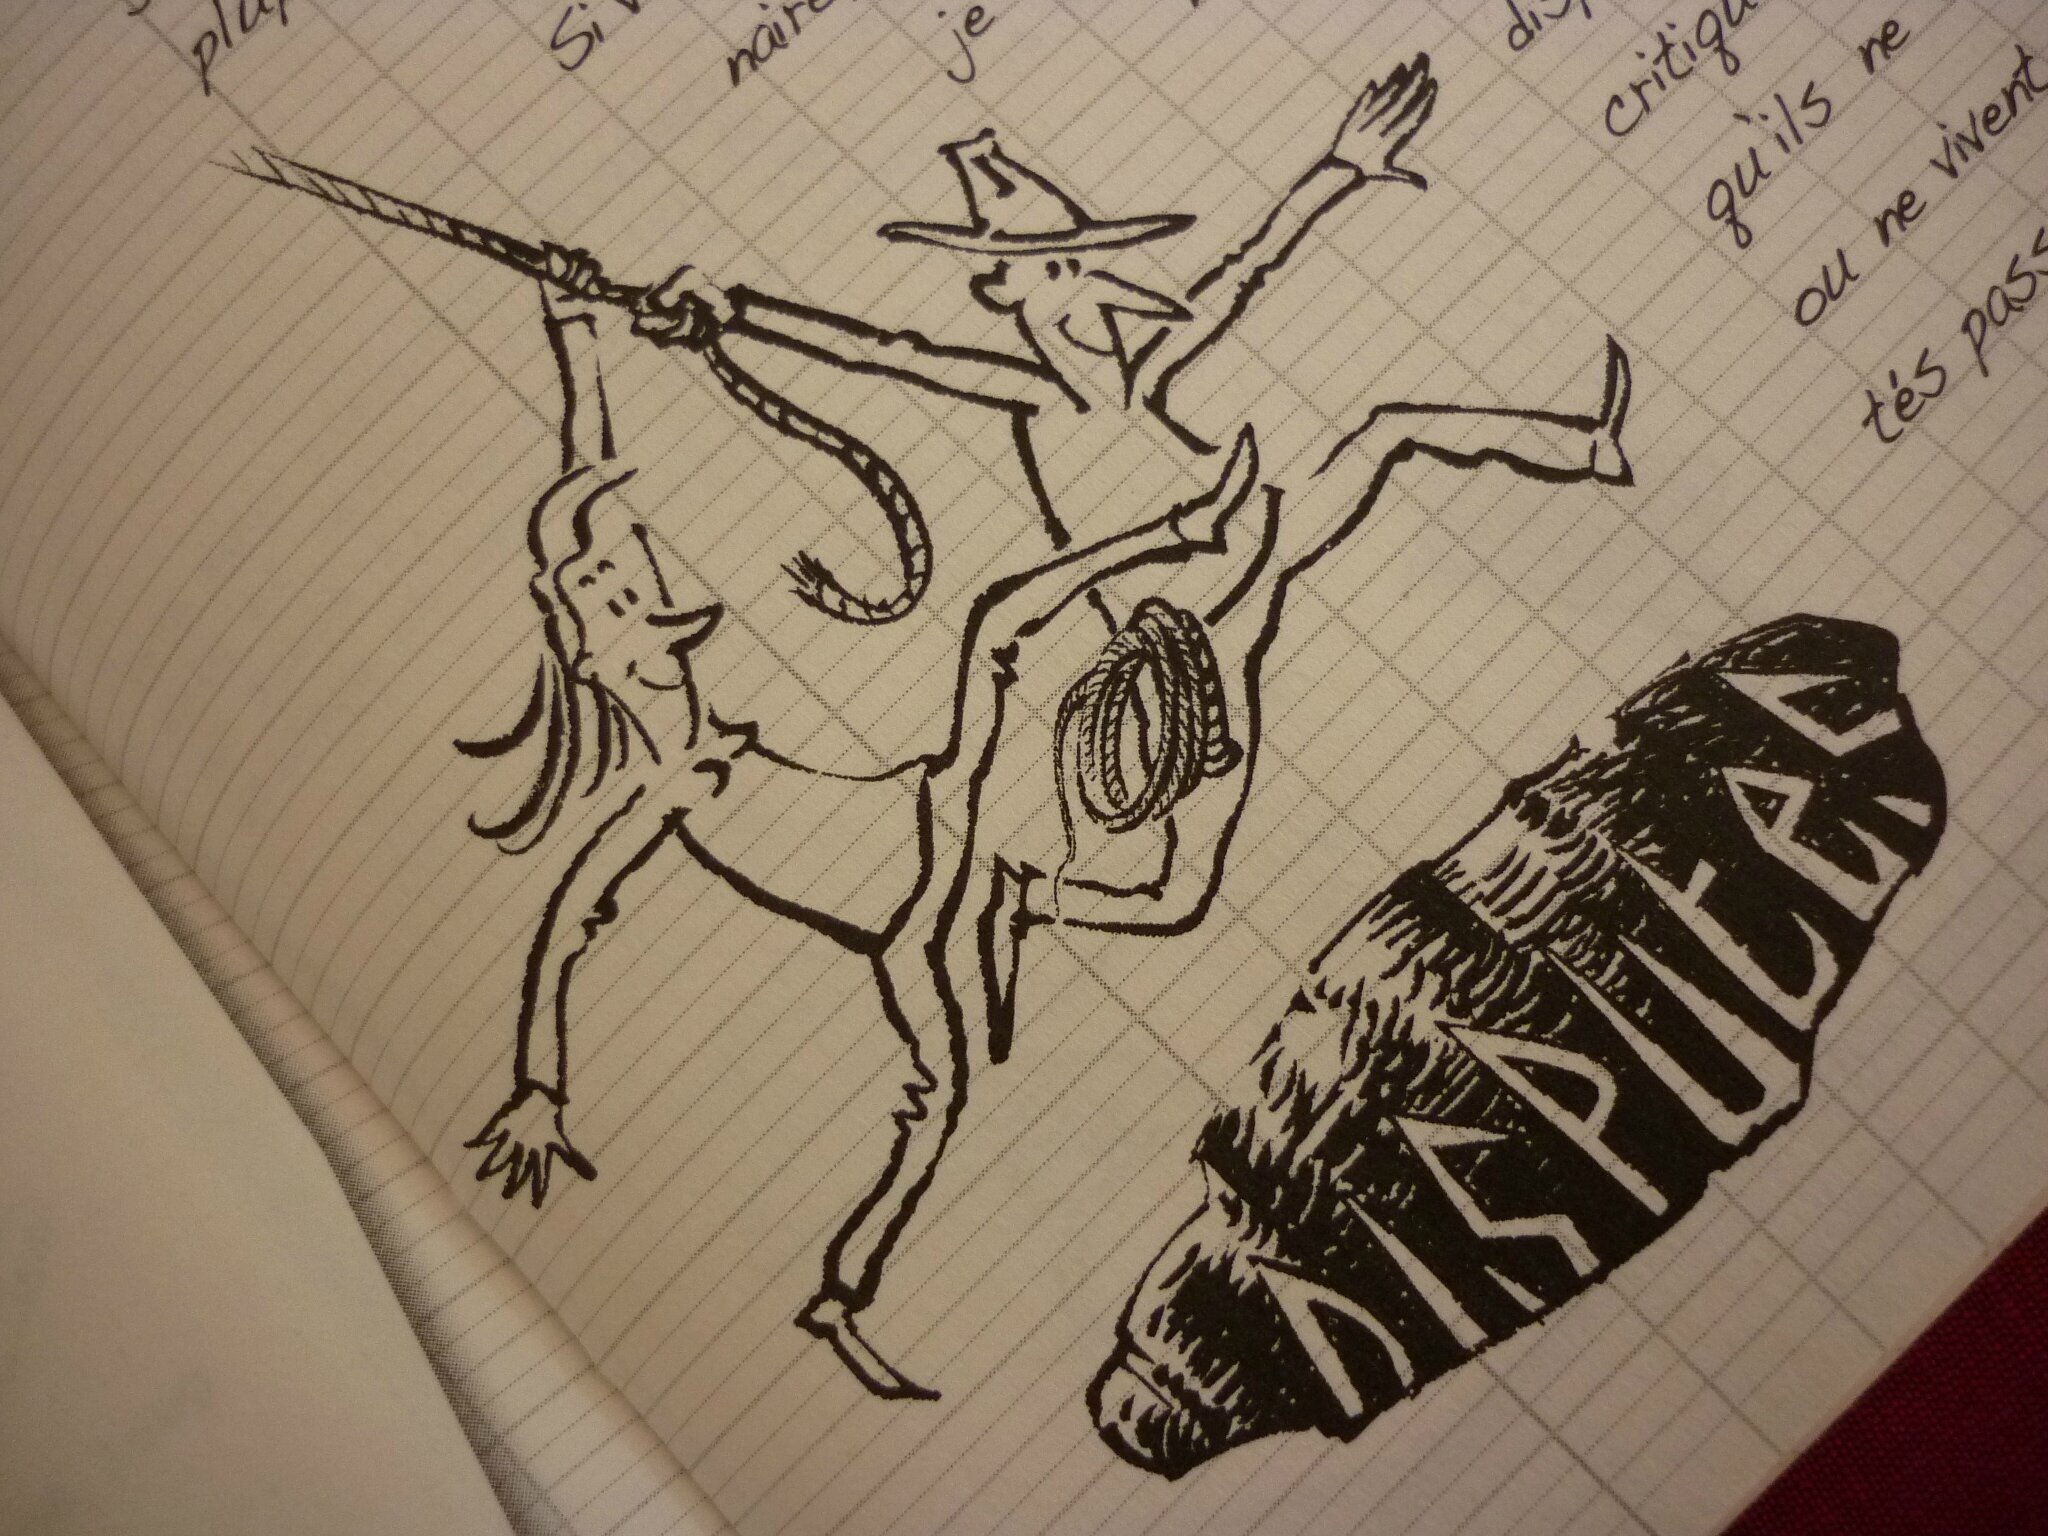 plup
Si v
naire
je
disp
critiqu
qu'ils ne
ou ne vivent
tés pass
DISPUTES